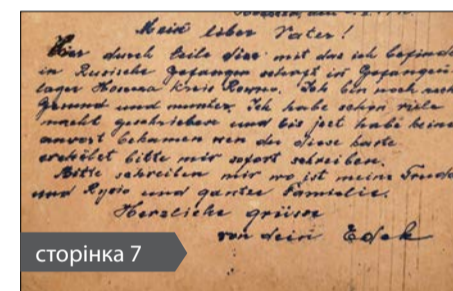 Mein liber Vater!
Hier durch teile dier mit das ich befinde
in Rusische Gefangen schaft in Gefangen
lager Kreis Rowno. Ich bin noch recht
Gesund und munter. Ich habe schon viele
macht geschriebene und bis ject habe keine
anvort bekamen wen du diese karte
erhölet bitte mir sofort schreiben.
Bitte schreiben mir wo ist meine
und Rysio und ganter Familie.
Herzliche grüsse
von dein Edek
сторінка 7